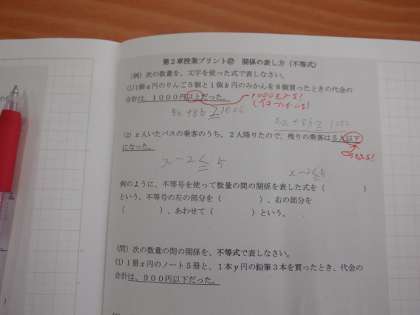 第2章授業プリント㉒ 関係の表し方(不等式)
(例)次の数量を、文字を使った式で表しなさい。
(1)1個a円のりんご5個と1個b円のみかんを8個買ったときの代金の
合計は、1000円以上だった。
(2)x人いたバスの乗客のうち、2人降りたので、残りの乗客は5人以下
になった。
x-2≦5
x-2≦5
例のように、不等号を使って数量の間の関係を表した式を( )
という。不等号の左の部分を( )、右の部分を
( )、あわせて( )という。
(問)次の数量の間の関係を、不等式で表しなさい。
(1)1冊x円のノート5冊と、1本y円の鉛筆3本を買ったとき、代金の
合計は、900円以下だった。